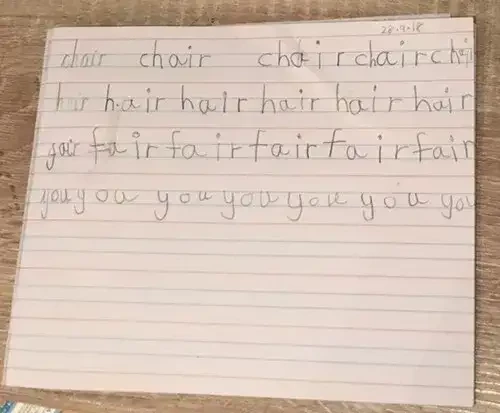 28.9.18
chair chair chair chair chair
hair hair hair hair hair hair
fair fair fair fair fair fair
you you you you you you you